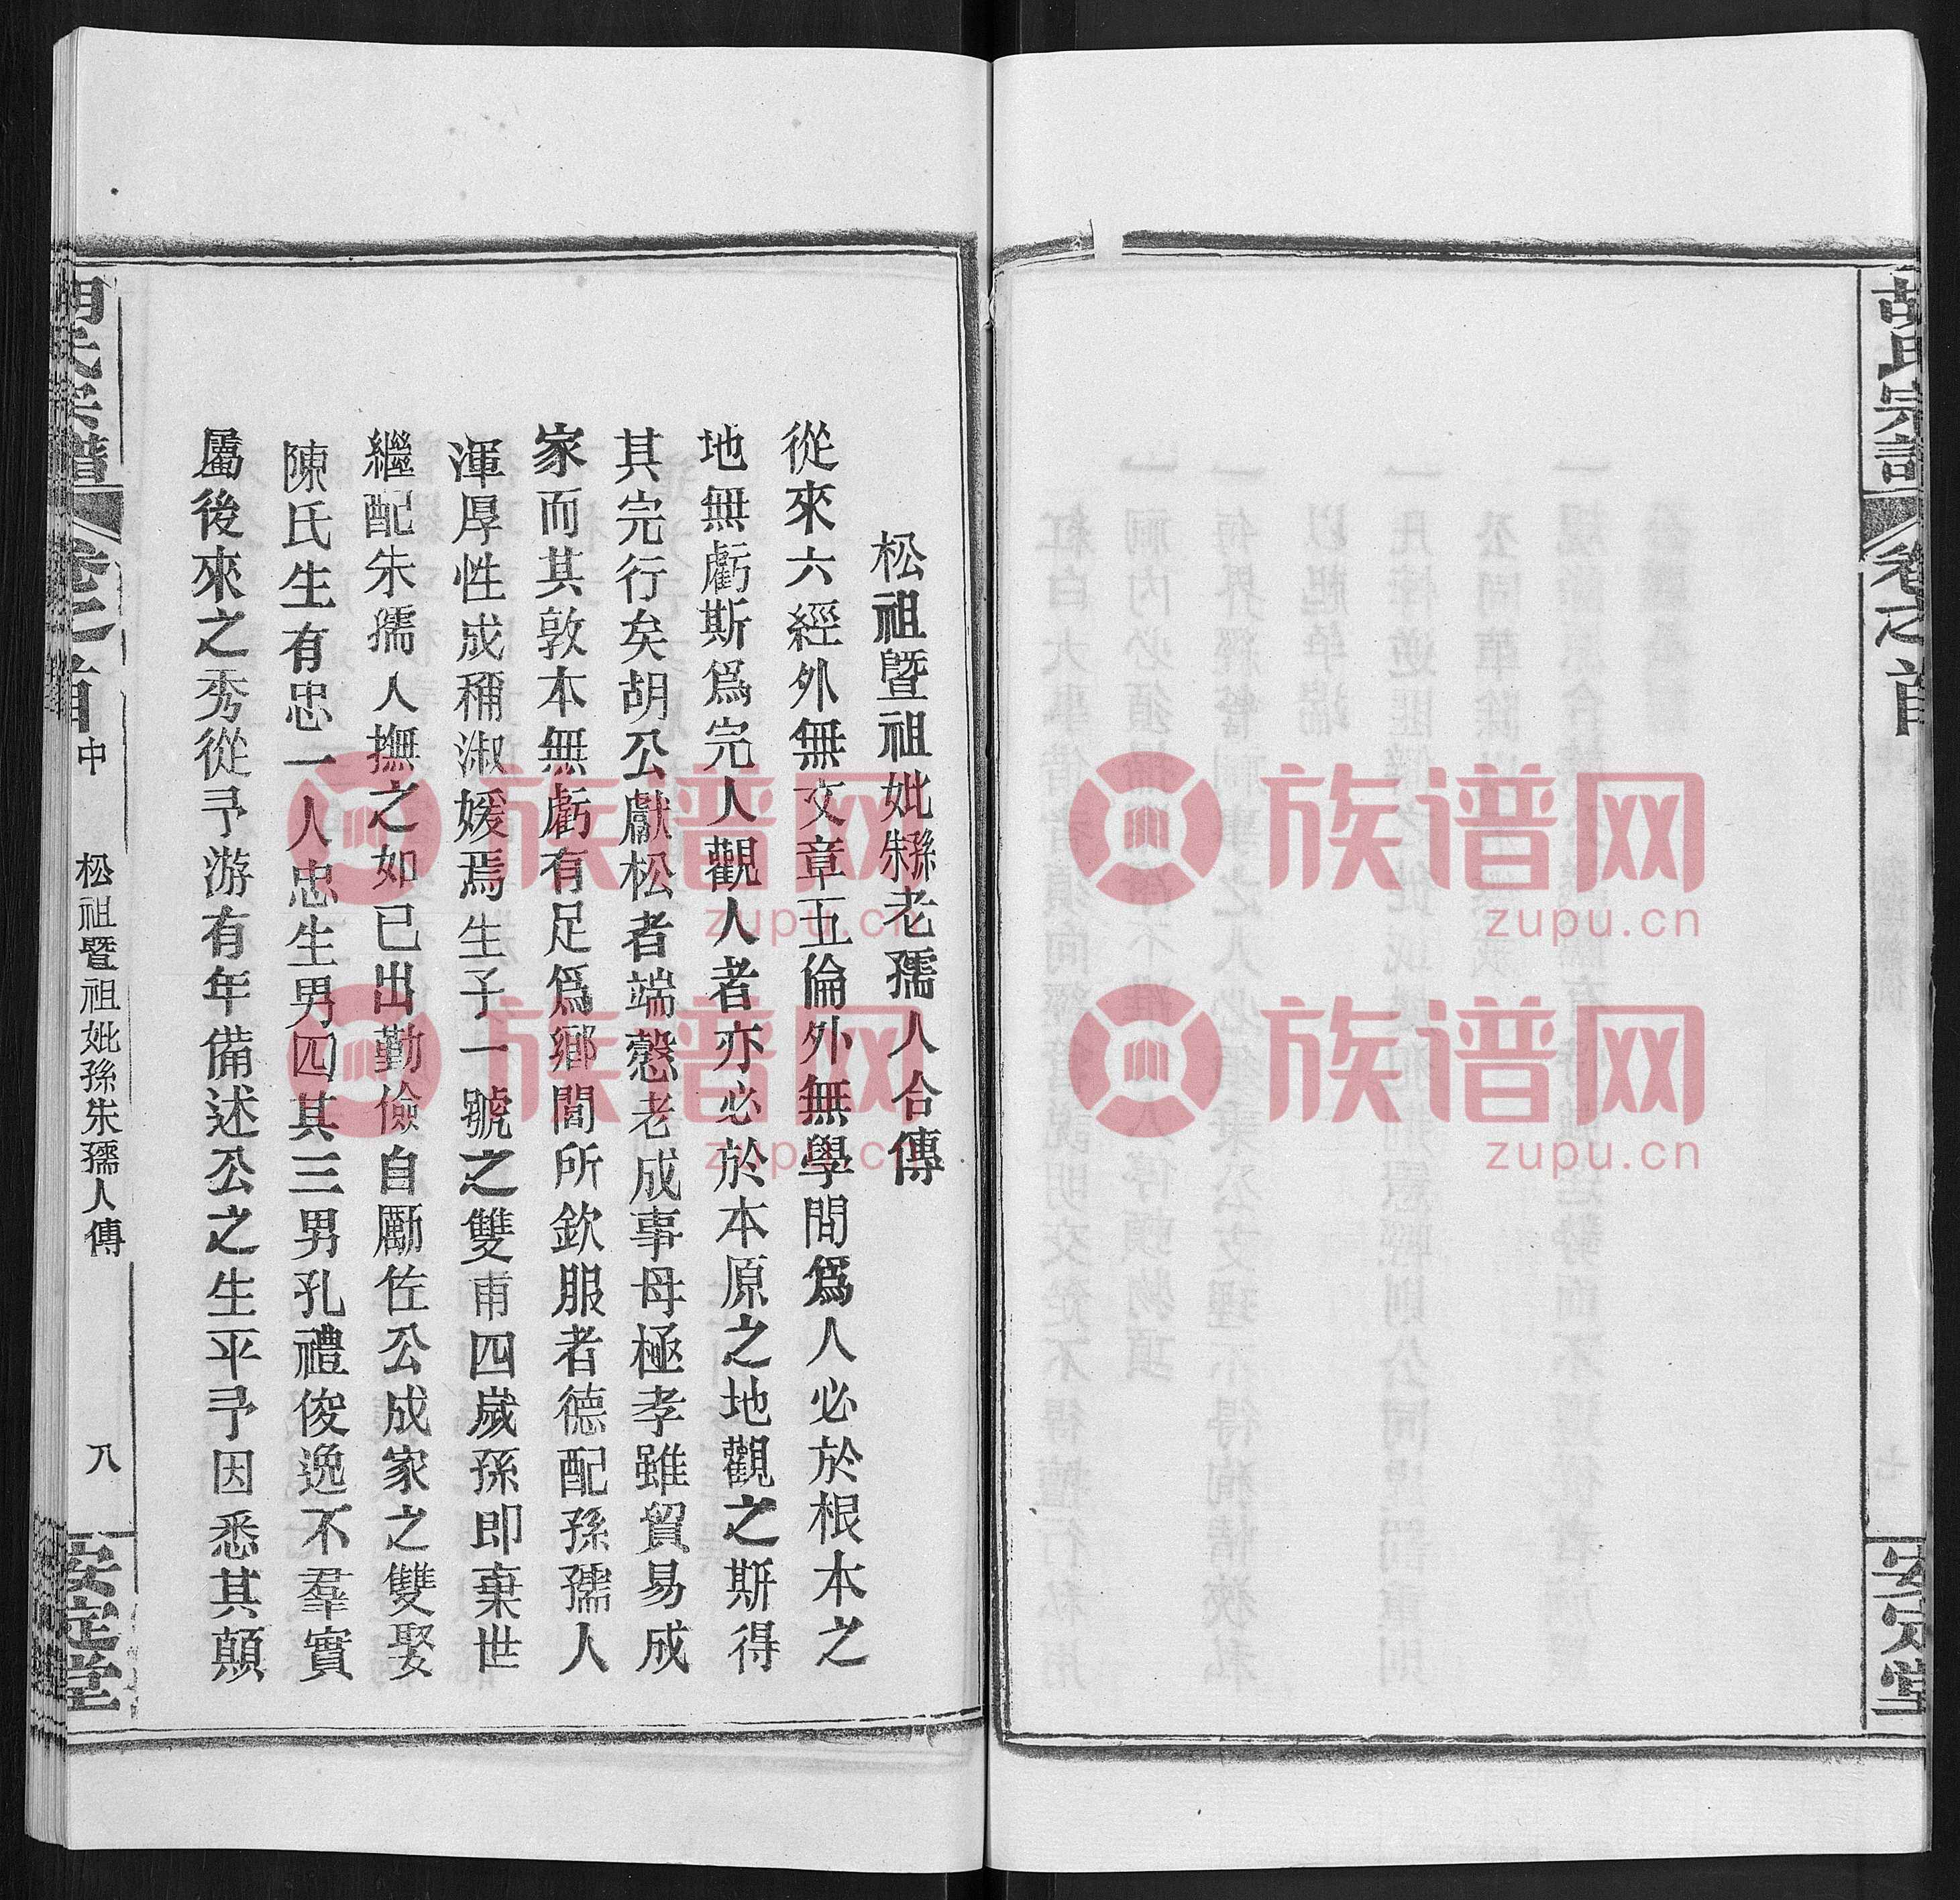 胡氏宗譜 卷之首
安定堂
松祖暨祖妣孫朱老孺人合傳
從來六經外無文章五倫外無學問爲人必於根本之
地無虧斯爲完人觀人者亦必於本原之地觀之斯得
其完行矣胡公獻松者端慤老成事母極孝雖貿易成
家而其敦本無虧有足爲鄉閭所欽服者德配孫孺人
渾厚性成稱淑媛焉生子一號之雙甫四歲孫即棄世
繼配朱孺人撫之如己出勤儉自勵佐公成家之雙娶
陳氏生有忠一人忠生男四其三男孔禮俊逸不羣實
屬後來之秀從予游有年備述公之生平予因悉其顛
胡氏宗譜 卷之首 中 松祖暨祖妣孫朱孺人傳 八 安定堂
族谱网
zupu.cn
族谱网
zupu.cn
族谱网
zupu.cn
族谱网
zupu.cn